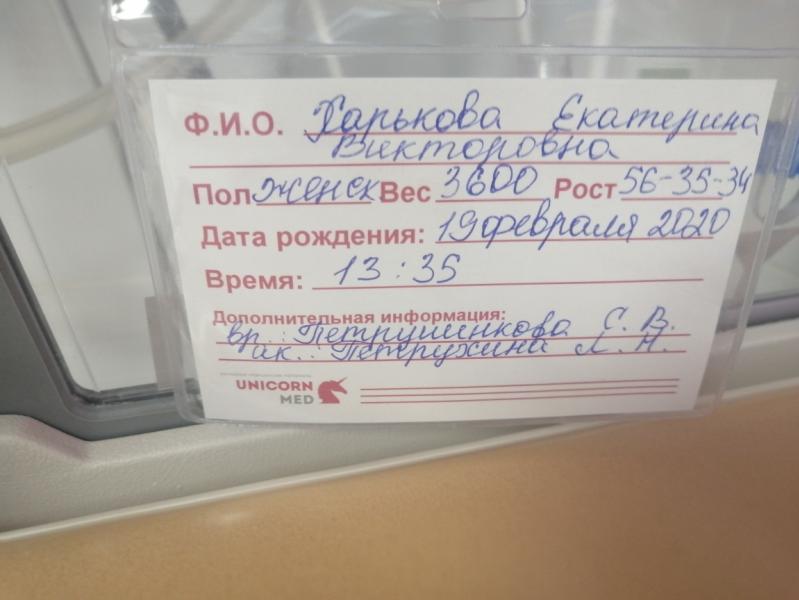 Ф.И.О. Харькова Екатерина
Викторовна
Пол женск Вес 3600 Рост 56-35-34
Дата рождения: 19 февраля 2020
Время: 13:35
Дополнительная информация:
вр.: Петрушинкова С. В.
ак.: Петрухина Л. Н.
UNICORN
MED